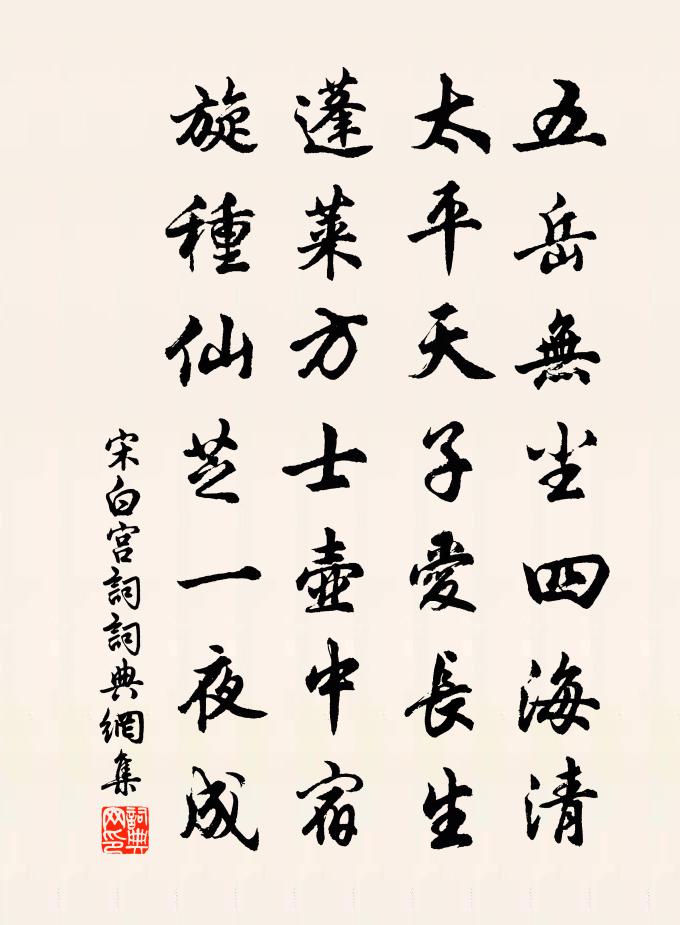 五岳無尘四海清
太平天子愛長生
蓬莱方士壷中宿
旋種仙芝一夜成
宋白宫詞詞典網集
詞典
网印